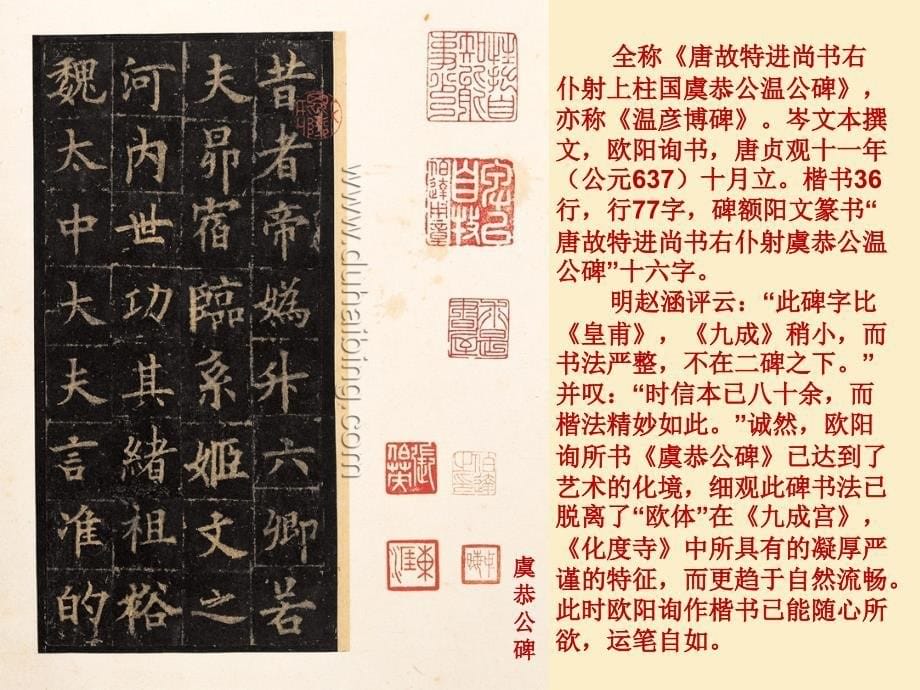 昔者帝媯升六卿若
夫昴宿臨系姬文之
河内世功其緒祖裕
魏太中大夫言准的
www.duhaibing.com
虞恭公碑
全称《唐故特进尚书右
仆射上柱国虞恭公温公碑》，
亦称《温彦博碑》。岑文本撰
文，欧阳询书，唐贞观十一年
（公元637）十月立。楷书36
行，行77字，碑额阳文篆书“
唐故特进尚书右仆射虞恭公温
公碑”十六字。
明赵涵评云：“此碑字比
《皇甫》，《九成》稍小，而
书法严整，不在二碑之下。”
并叹：“时信本已八十余，而
楷法精妙如此。”诚然，欧阳
询所书《虞恭公碑》已达到了
艺术的化境，细观此碑书法已
脱离了“欧体”在《九成宫》，
《化度寺》中所具有的凝厚严
谨的特征，而更趋于自然流畅。
此时欧阳询作楷书已能随心所
欲，运笔自如。